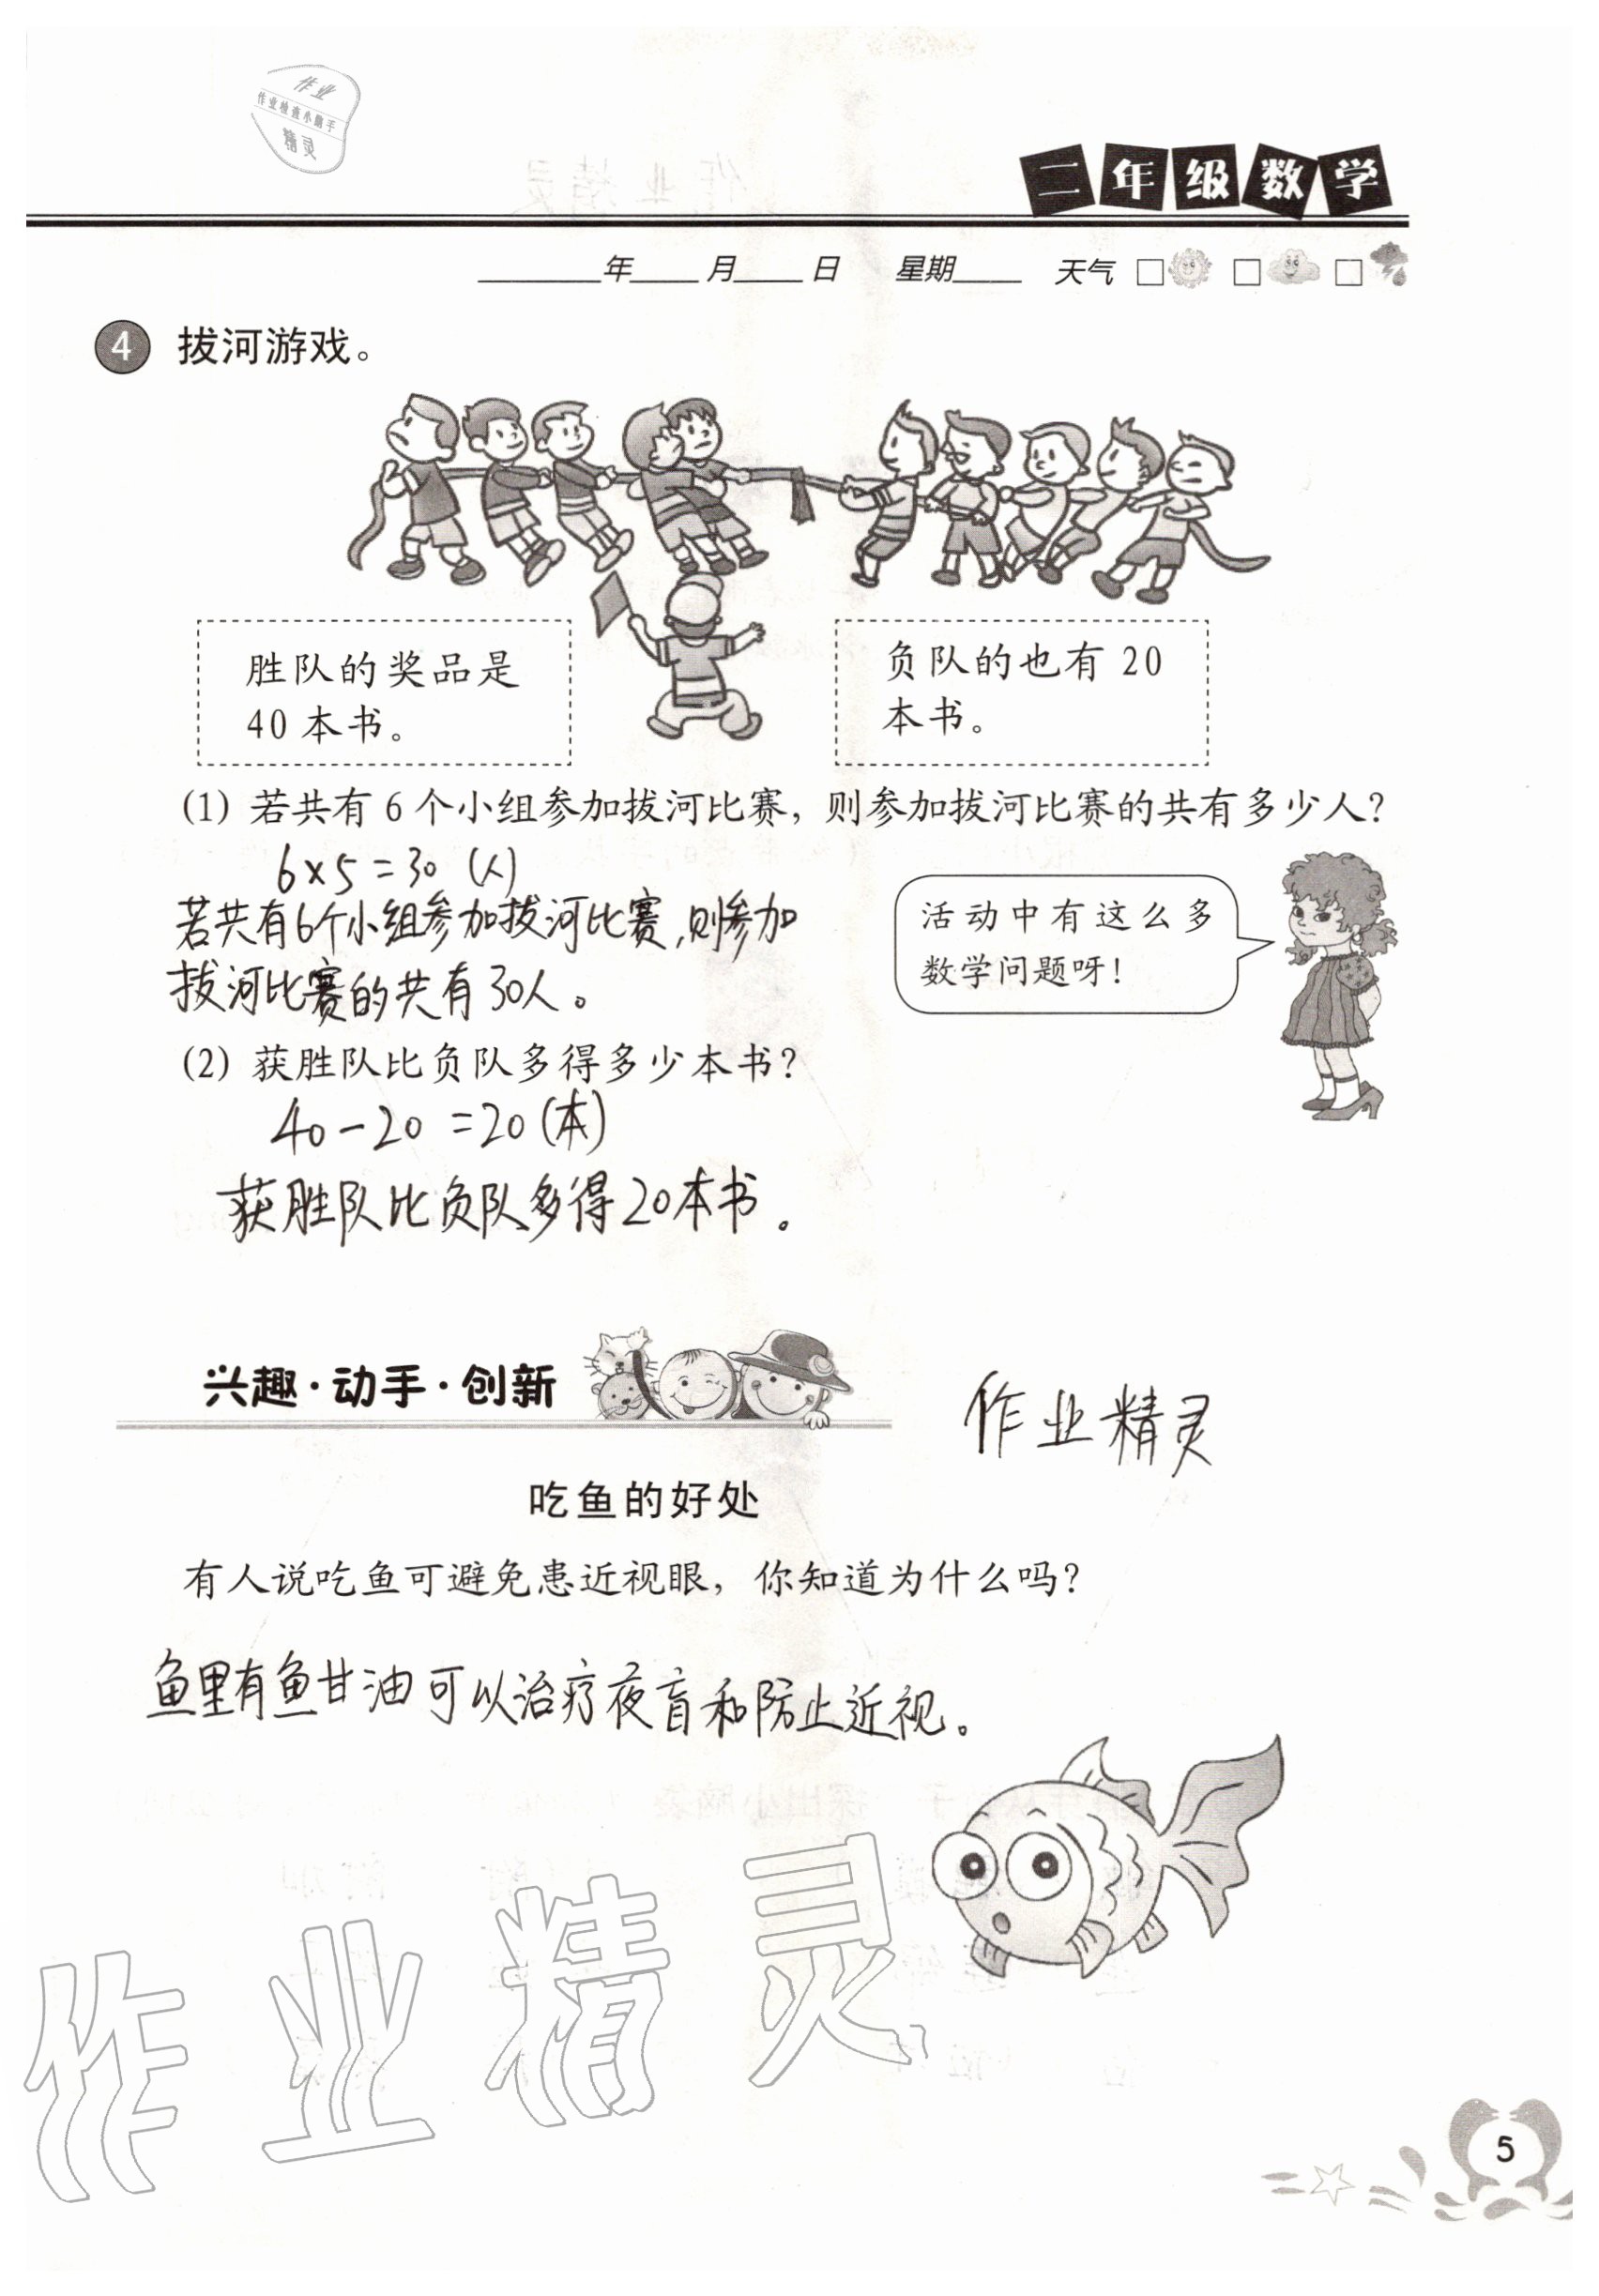 作业
作业检查小助手
精灵
二年级数学
____年____月____日 星期____ 天气 □ □ □
4 拔河游戏。
胜队的奖品是
40本书。
负队的也有20
本书。
(1) 若共有6个小组参加拔河比赛，则参加拔河比赛的共有多少人？
6×5=30 (人)
若共有6个小组参加拔河比赛,则参加
拔河比赛的共有30人。
活动中有这么多
数学问题呀！
(2) 获胜队比负队多得多少本书？
40-20=20(本)
获胜队比负队多得20本书。
兴趣·动手·创新
作业精灵
吃鱼的好处
有人说吃鱼可避免患近视眼，你知道为什么吗？
鱼里有鱼甘油可以治疗夜盲和防止近视。
作业精灵
5